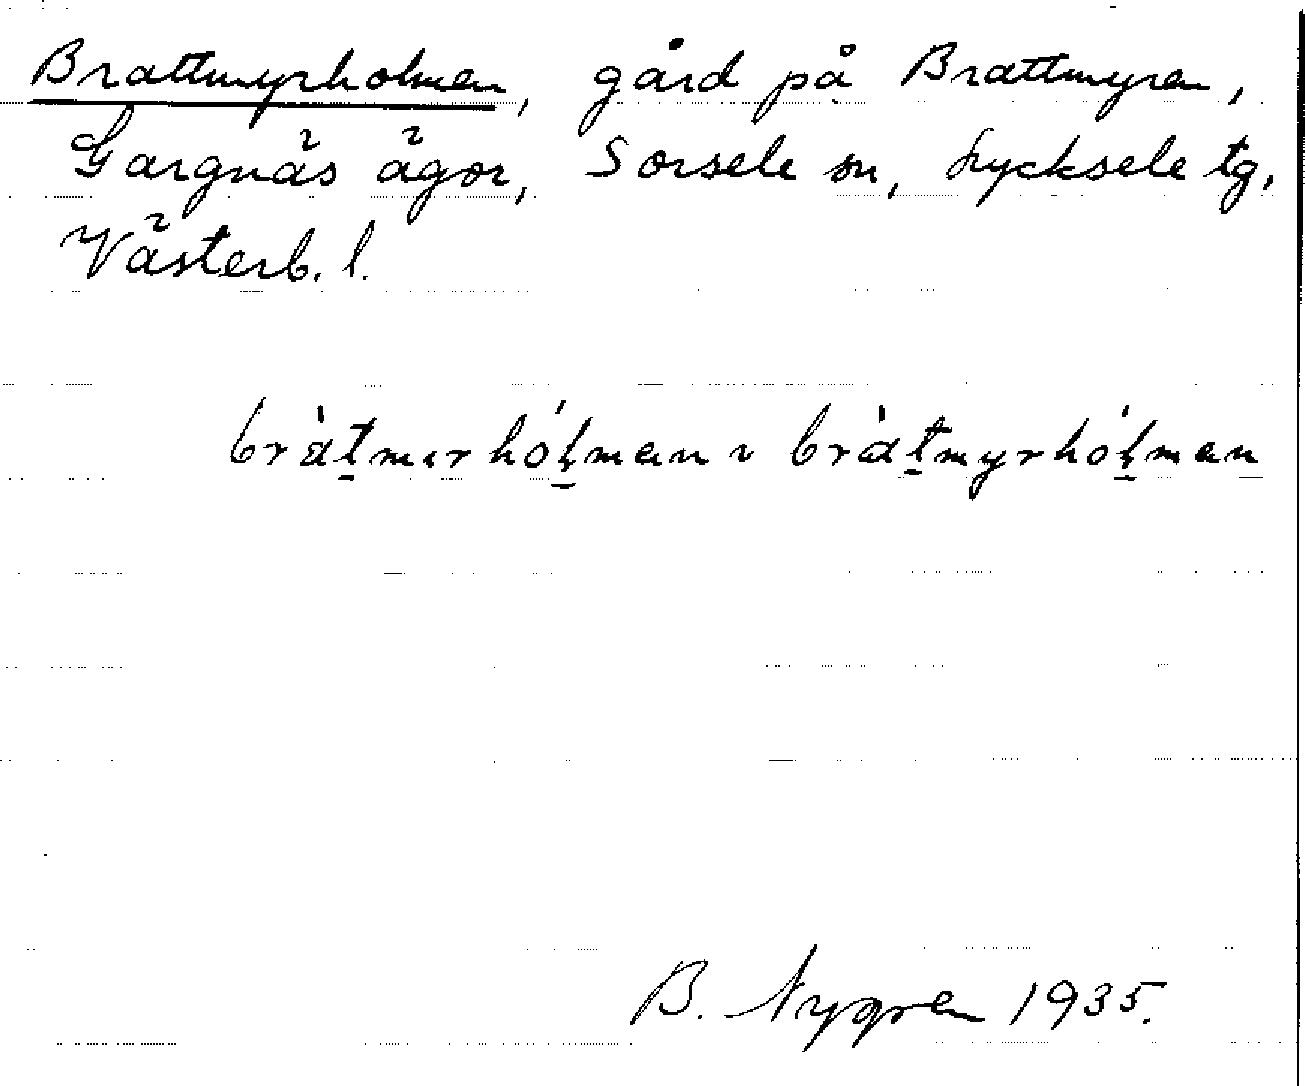 Brattmyrholmen, gård på Brattmyren,
Gargnäs ägor, Sorsele sn, Lycksele tg,
Västerb. l.
bràt̠mırhól̠man ı bràt̠myrhól̠man
B. Nygren 1935.